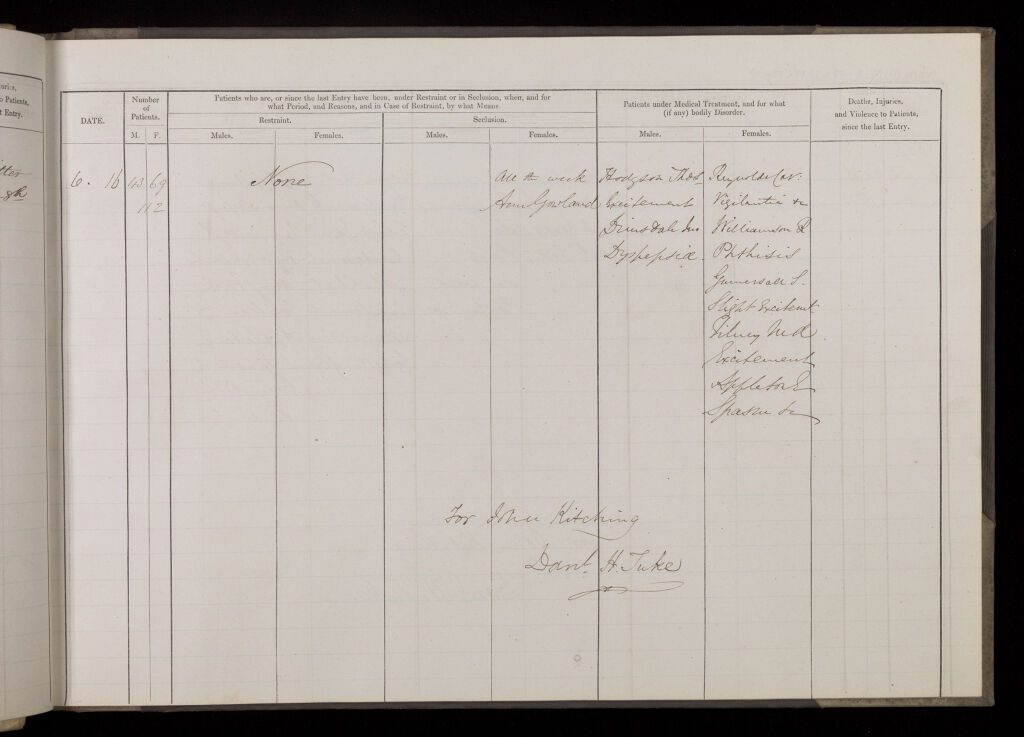 uries,
o Patients,
t Entry.
8th
DATE.
Number
of
Patients.
M. F.
Patients who are, or since the last Entry have been, under Restraint or in Seclusion, when, and for
what Period, and Reasons, and in Case of Restraint, by what Means.
Restraint.
Males.
Females.
Seclusion.
Males.
Females.
Patients under Medical Treatment, and for what
(if any) bodily Disorder.
Males.
Females.
Deaths, Injuries,
and Violence to Patients,
since the last Entry.
6. 16
43 69
112
None
All the week
Ann Gowland
Hodgson Thos
Excitement
Dimsdale Jno
Dyspepsia.
Reynolds Car:
Vigilantia &c
Williamson R
Phthisis
Gumersall S.
Slight Excitemt
Tilney M A
Excitement
Appleton E
Spasm &c
For John Kitching
Danl. H. Tuke